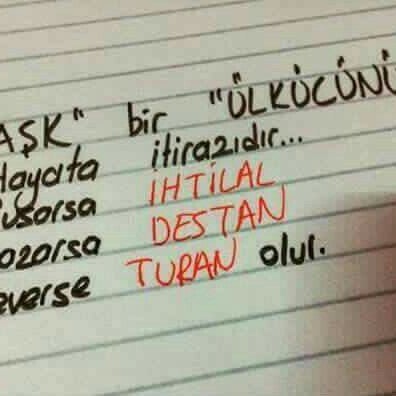 AŞK" bir "ÜLKÜCÜNÜ
Hayata itirazıdır...
usarsa İHTİLAL
azarsa DESTAN
everse TURAN olur.